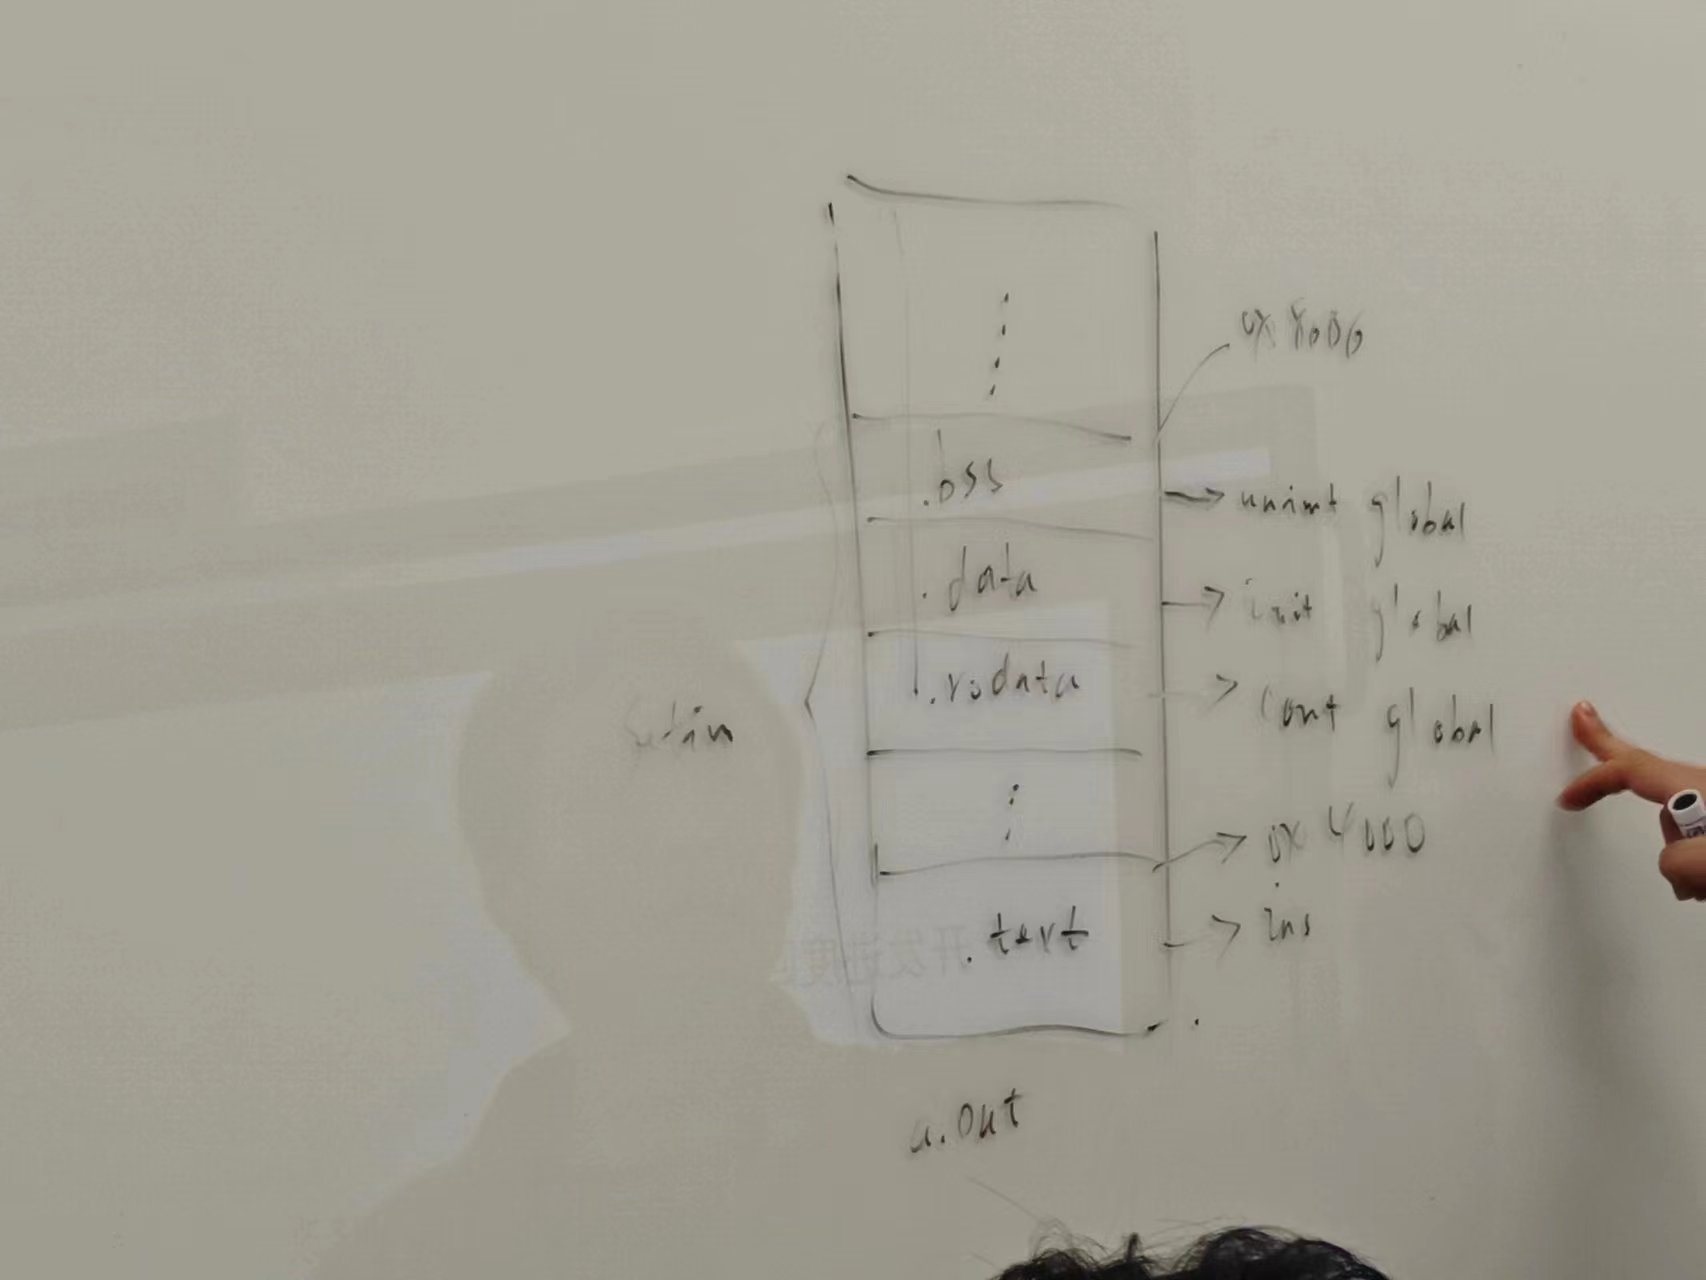 0x8000
.bss
uninit global
.data
init global
.rodata
const global
0x4000
.text
ins
a.out